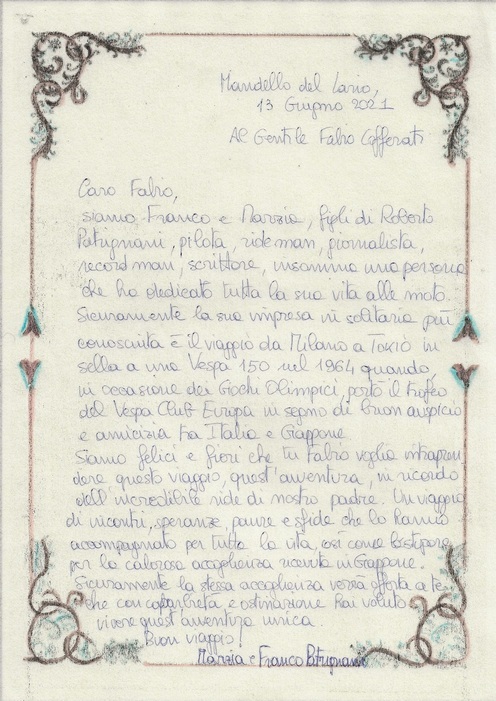 Mandello del Lario,
13 Giugno 2021
Al Gentile Fabio Cofferati
Caro Fabio,
siamo Franco e Marzia, figli di Roberto
Patrignani, pilota, rideman, giornalista,
recordman, scrittore, insomma una persona
che ha dedicato tutta la sua vita alle moto.
Sicuramente la sua impresa in solitaria più
conosciuta è il viaggio da Milano a Tokio in
sella a una Vespa 150 nel 1964 quando,
in occasione dei Giochi Olimpici, portò il trofeo
del Vespa Club Europa in segno di buon auspicio
e amicizia tra Italia e Giappone.
Siamo felici e fieri che tu Fabio voglia intrapren
dere questo viaggio, quest'avventura, in ricordo
dell'incredibile ride di nostro padre. Un viaggio
di incontri, speranze, paure e sfide che lo hanno
accompagnato per tutta la vita, così come lo stupore
per la calorosa accoglienza ricevuta in Giappone.
Sicuramente la stessa accoglienza verrà offerta a te
che con caparbietà e ostinazione hai voluto
vivere quest'avventura unica.
Buon viaggio!
Marzia e Franco Patrignani